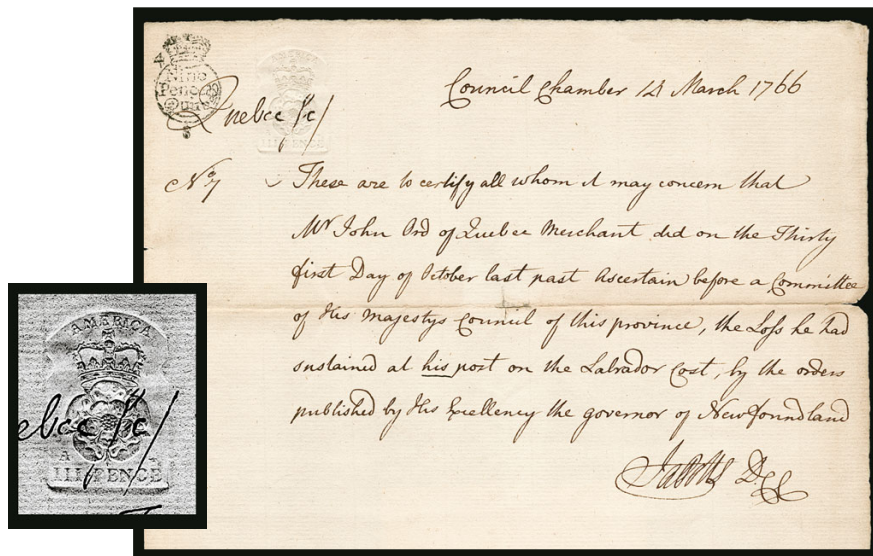 Nine
Pence
Quire
AMERICA
III PENCE
Council Chamber 14 March 1766
Quebec Sc/
No 7
These are to certify all whom it may concern that
Mr John Ord of Quebec Merchant did on the Thirty
first Day of October last past Ascertain before a Committee
of His Majestys Council of this province, the Loss he had
sustained at his post on the Labrador Cost, by the orders
published by His Excellency the governor of Newfoundland
AMERICA
ebec Sc/
A
III PENCE